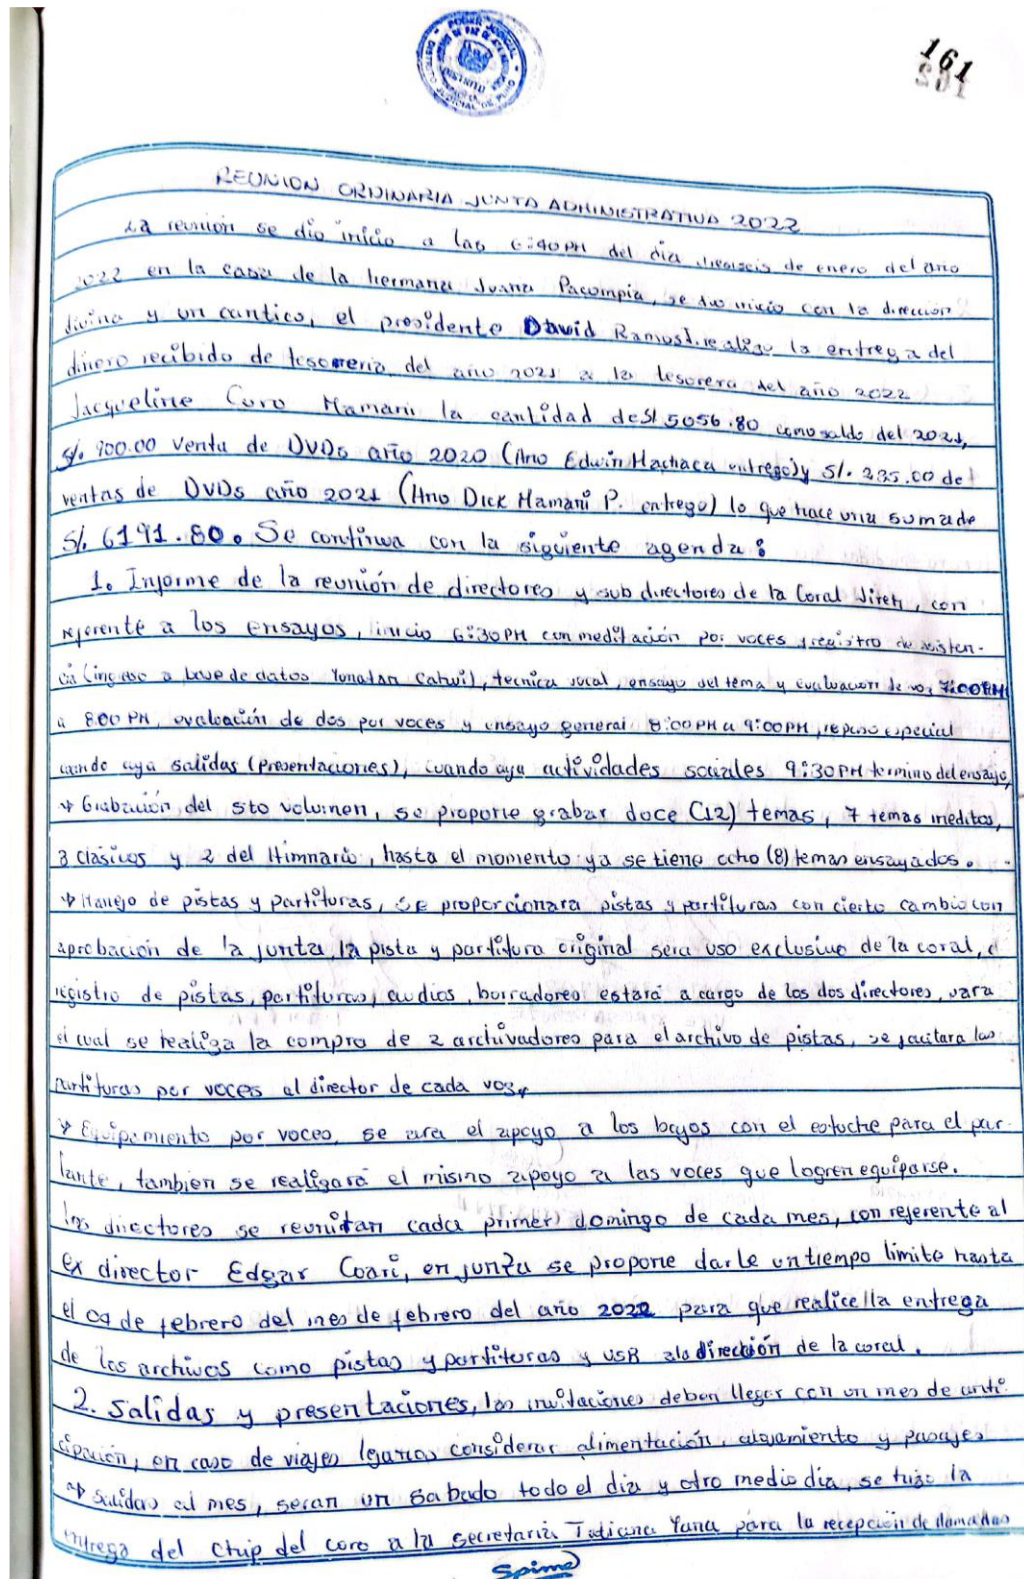 161
REUNION ORDINARIA JUNTA ADMINISTRATIVA 2022
La reunion se dio inicio a las 6:40PM del dia dieciseis de enero del año
2022 en la casa de la hermana Juana Pacompia, se dio inicio con la dirección
divina y un cantico, el presidente David Ramos realizo la entrega del
dinero recibido de tesoreria del año 2021 a la tesorera del año 2022
Jacqueline Coro Mamani la cantidad de S/ 5056.80 como saldo del 2021,
S/. 900.00 venta de DVDs año 2020 (Hno Edwin Machaca entrego) y S/. 235.00 de
ventas de DVDs año 2021 (Hno Dick Mamani P. entrego) lo que hace una suma de
S/. 6191.80. Se continua con la siguiente agenda:
1. Informe de la reunión de directores y sub directores de la Coral Jireh, con
referente a los ensayos, inicio 6:30PM con meditación por voces y registro de asisten-
cia (ingreso a base de datos Yonatan Cahui), tecnica vocal, ensayo del tema y evaluacion de voz 7:00PM
a 8:00 PM, evaluación de dos por voces y ensayo general 8:00PM a 9:00PM, repaso especial
cuando aya salidas (presentaciones), cuando aya actividades sociales 9:30PM termino del ensayo,
→ Grabación del 5to volumen, se propone grabar doce (12) temas, 7 temas ineditos,
3 clásicos y 2 del Himnario, hasta el momento ya se tiene ocho (8) temas ensayados.
→ Manejo de pistas y partituras, se proporcionara pistas y partituras con cierto cambio con
aprobación de la junta, la pista y partitura original sera uso exclusivo de la coral, el
registro de pistas, partituras, audios, borradores estará a cargo de los dos directores, para
el cual se realiza la compra de 2 archivadores para el archivo de pistas, se facilitara las
partituras por voces al director de cada voz.
→ Equipamiento por voces, se ara el apoyo a los bajos con el estuche para el par-
lante, tambien se realizará el mismo apoyo a las voces que logren equiparse.
los directores se reunitan cada primer domingo de cada mes, con referente al
ex director Edgar Coari, en junta se propone darle un tiempo limite hasta
el 09 de febrero del mes de febrero del año 2022 para que realice la entrega
de los archivos como pistas y partituras y USB a la dirección de la coral.
2. Salidas y presentaciones, las invitaciones deben llegar con un mes de anti-
cipación, en caso de viajes lejanos considerar alimentación, alojamiento y pasajes
→ Salidas al mes, seran un sabado todo el dia y otro medio dia, se hizo la
entrega del chip del coro a la secretaria Tatiana Yana para la recepción de llamadas
Spime